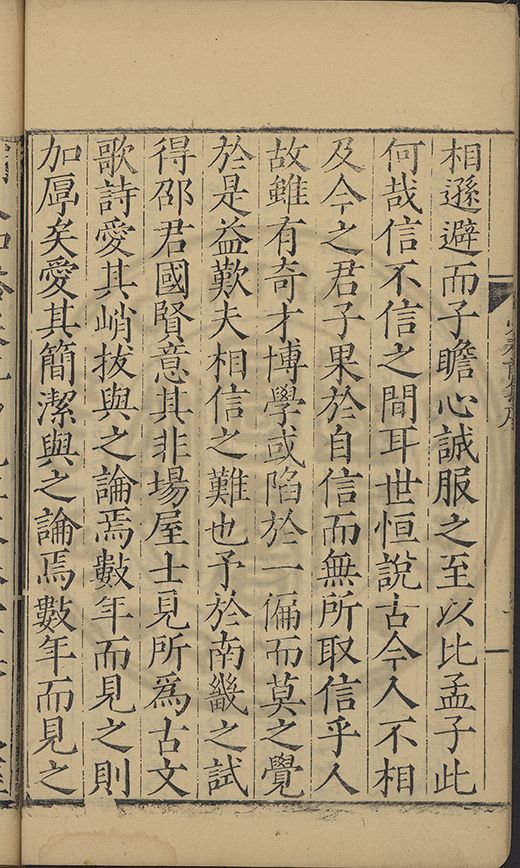 相遜避而子瞻心誠服之至以比孟子此
何哉信不信之間耳世恒說古今人不相
及今之君子果於自信而無所取信乎人
故雖有奇才博學或陷於一偏而莫之覺
於是益歎夫相信之難也予於南畿之試
得邵君國賢意其非場屋士見所爲古文
歌詩愛其峭拔與之論焉數年而見之則
加厚矣愛其簡潔與之論焉數年而見之